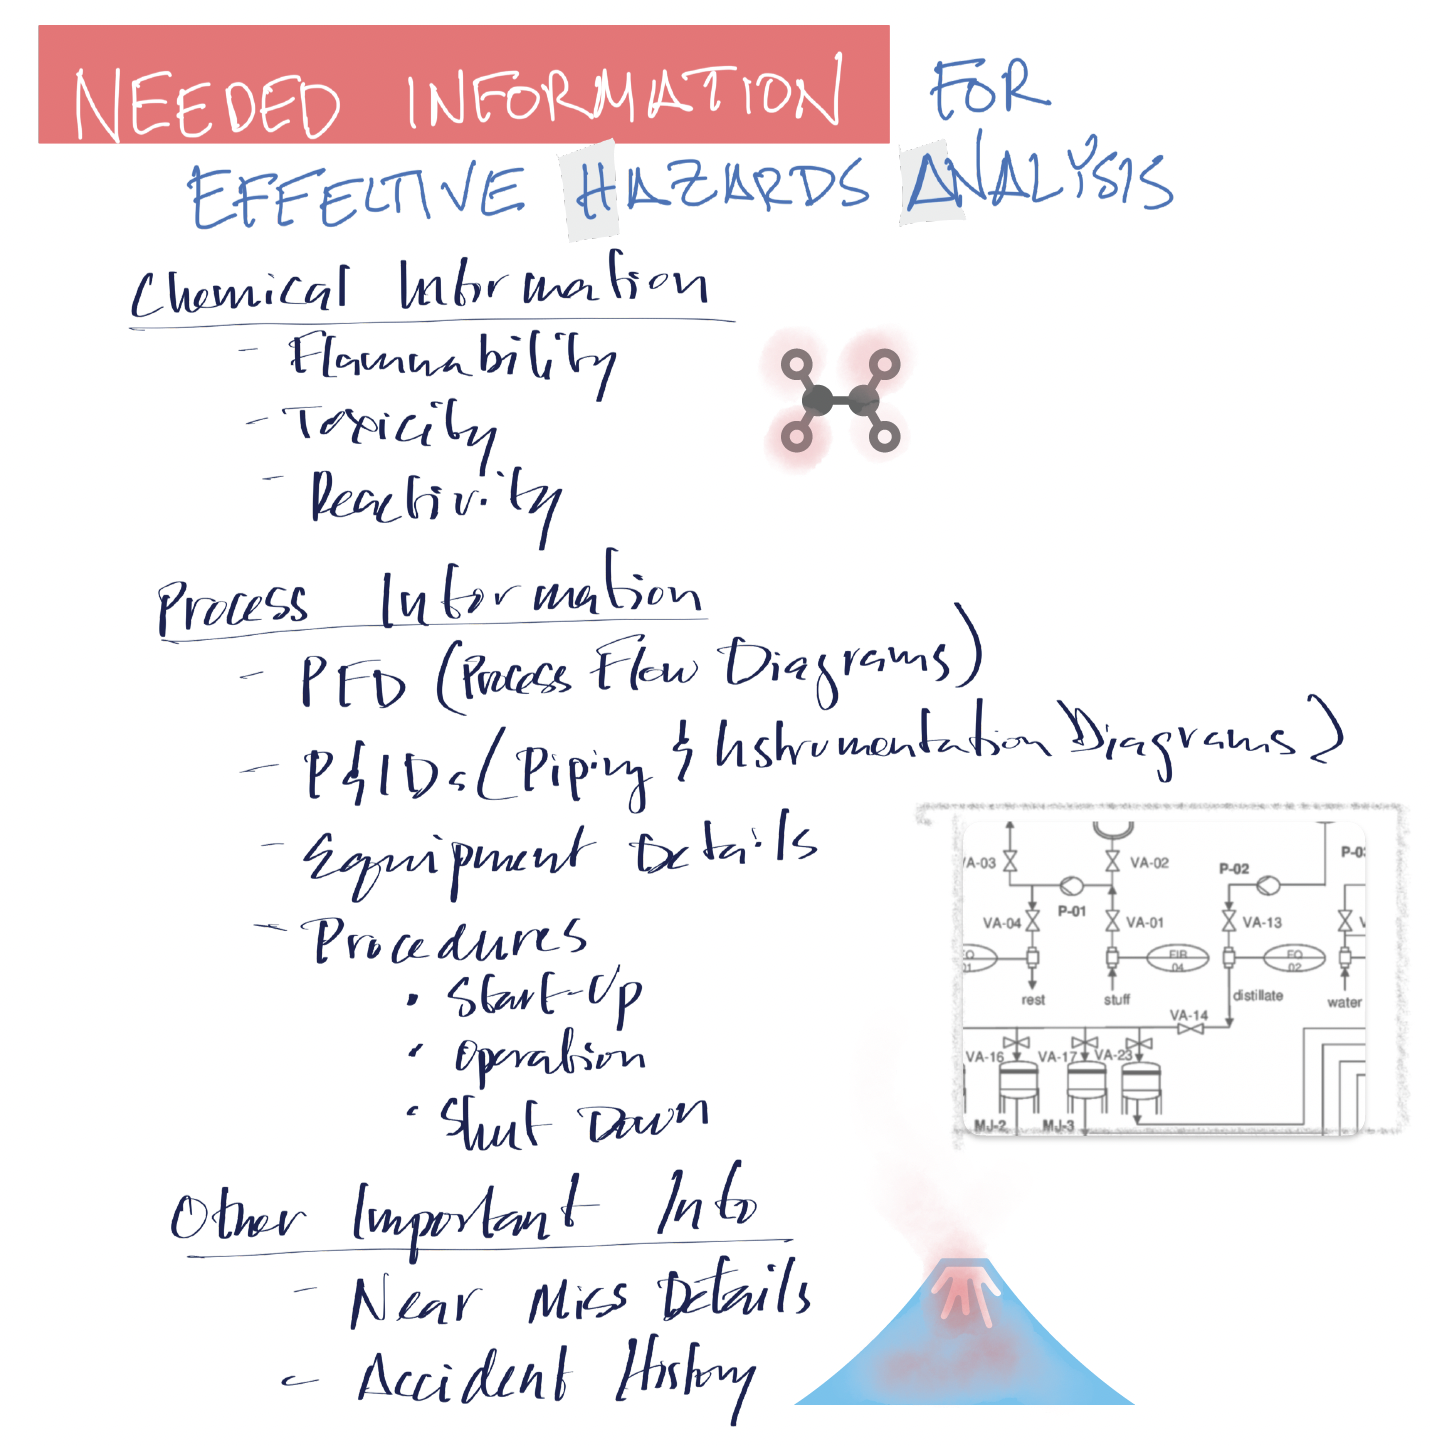 NEEDED INFORMATION FOR
EFFECTIVE HAZARDS ANALYSIS
Chemical Information
- Flammability
- Toxicity
- Reactivity
Process Information
- PFD (Process Flow Diagrams)
- P&IDs (Piping & Instrumentation Diagrams)
- Equipment Details
- Procedures
• Start-Up
• Operation
• Shut Down
Other Important Info
- Near Miss Details
- Accident History
/A-03
VA-02
P-02
P-0
P-01
VA-04
VA-01
VA-13
V
FIR
04
FO
02
01
rest
stuff
distillate
water
VA-14
VA-16
VA-17
VA-23
MJ-2
MJ-3